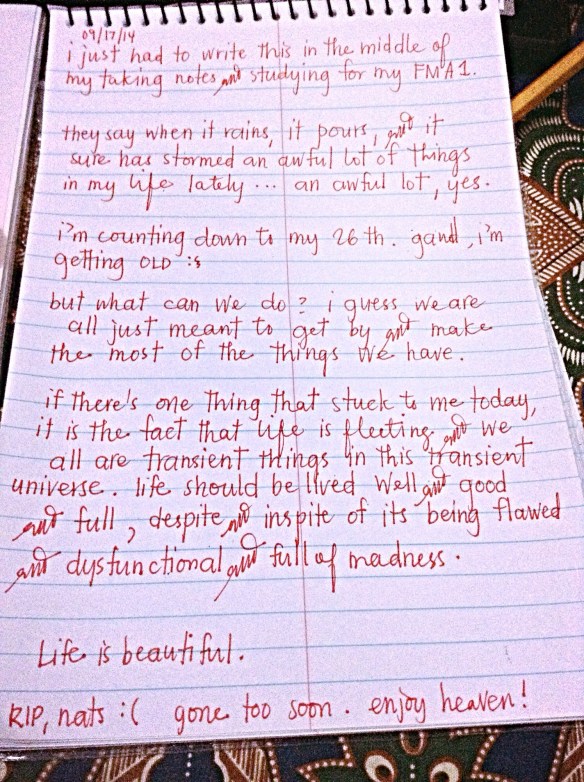 09/17/14
i just had to write this in the middle of
my taking notes and studying for my FMA1.
they say when it rains, it pours, and it
sure has stormed an awful lot of things
in my life lately ... an awful lot, yes.
i'm counting down to my 26th. gahd, i'm
getting OLD :s
but what can we do? i guess we are
all just meant to get by and make
the most of the things we have.
if there's one thing that stuck to me today,
it is the fact that life is fleeting and we
all are transient things in this transient
universe. life should be lived well and good
and full, despite and inspite of its being flawed
and dysfunctional and full of madness.
Life is beautiful.
RIP, nats :( gone too soon. enjoy heaven!